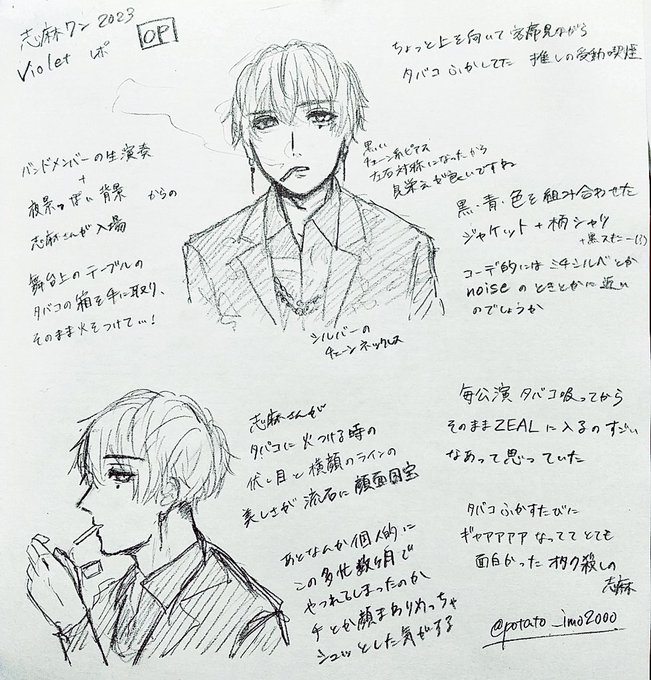 志麻ワン 2023
Violet レポ
OP
ちょっと上を向いて客席見ながら
タバコふかしてた 推しの受動喫煙
バンドメンバーの生演奏
+
夜景っぽい背景 からの
志麻さんが入場
舞台上のテーブルの
タバコの箱を手に取り、
そのまま火をつけて…!
黒い
チェーン系ピアス
左右対称になったから
見栄えが良いですね
黒・青・色を組み合わせた
ジャケット+柄シャツ
+黒スキニー(?)
コーデ的には ミチシルベとか
noise のときとかに近い
のでしょうか
シルバーの
チェーンネックレス
志麻さんが
タバコに火つける時の
伏し目と横顔のラインの
美しさが 流石に顔面国宝
あとなんか個人的に
この多忙数ヶ月で
やつれてしまったのか
手とか顔まわりめっちゃ
シュッとした気がする
毎公演 タバコ吸ってから
そのままZEALに入るのすごい
なあって思っていた
タバコふかすたびに
ギャアアアア なってて とても
面白かった オタク殺しの
志麻
@potato_imo2000